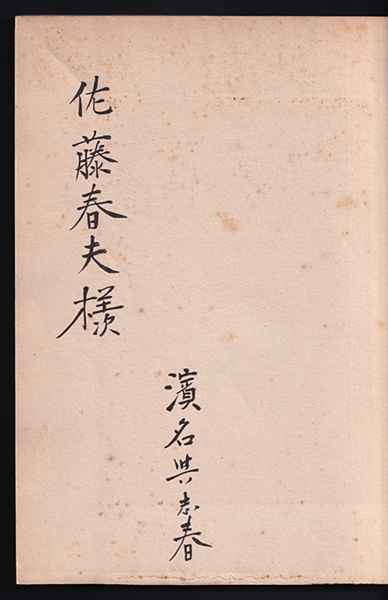 佐藤春夫樣
濱名與志春